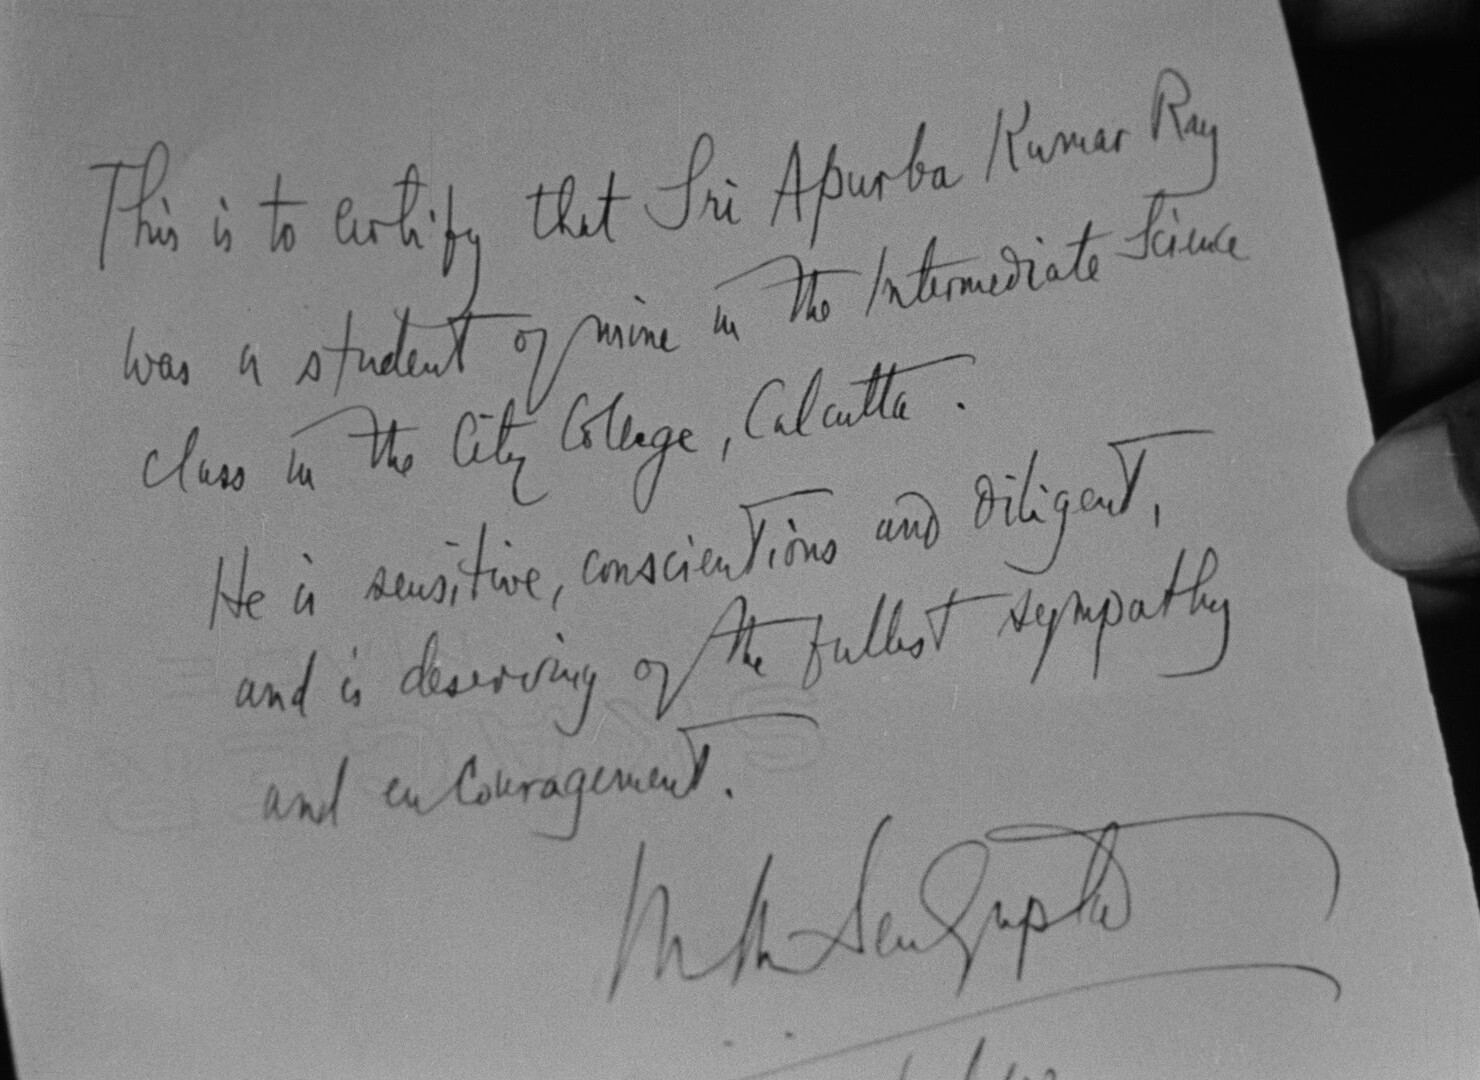 This is to certify that Sri Apurba Kumar Ray
was a student of mine in the Intermediate Science
class in the City College, Calcutta.
He is sensitive, conscientious and diligent,
and is deserving of the fullest sympathy
and encouragement.
Sen Gupta